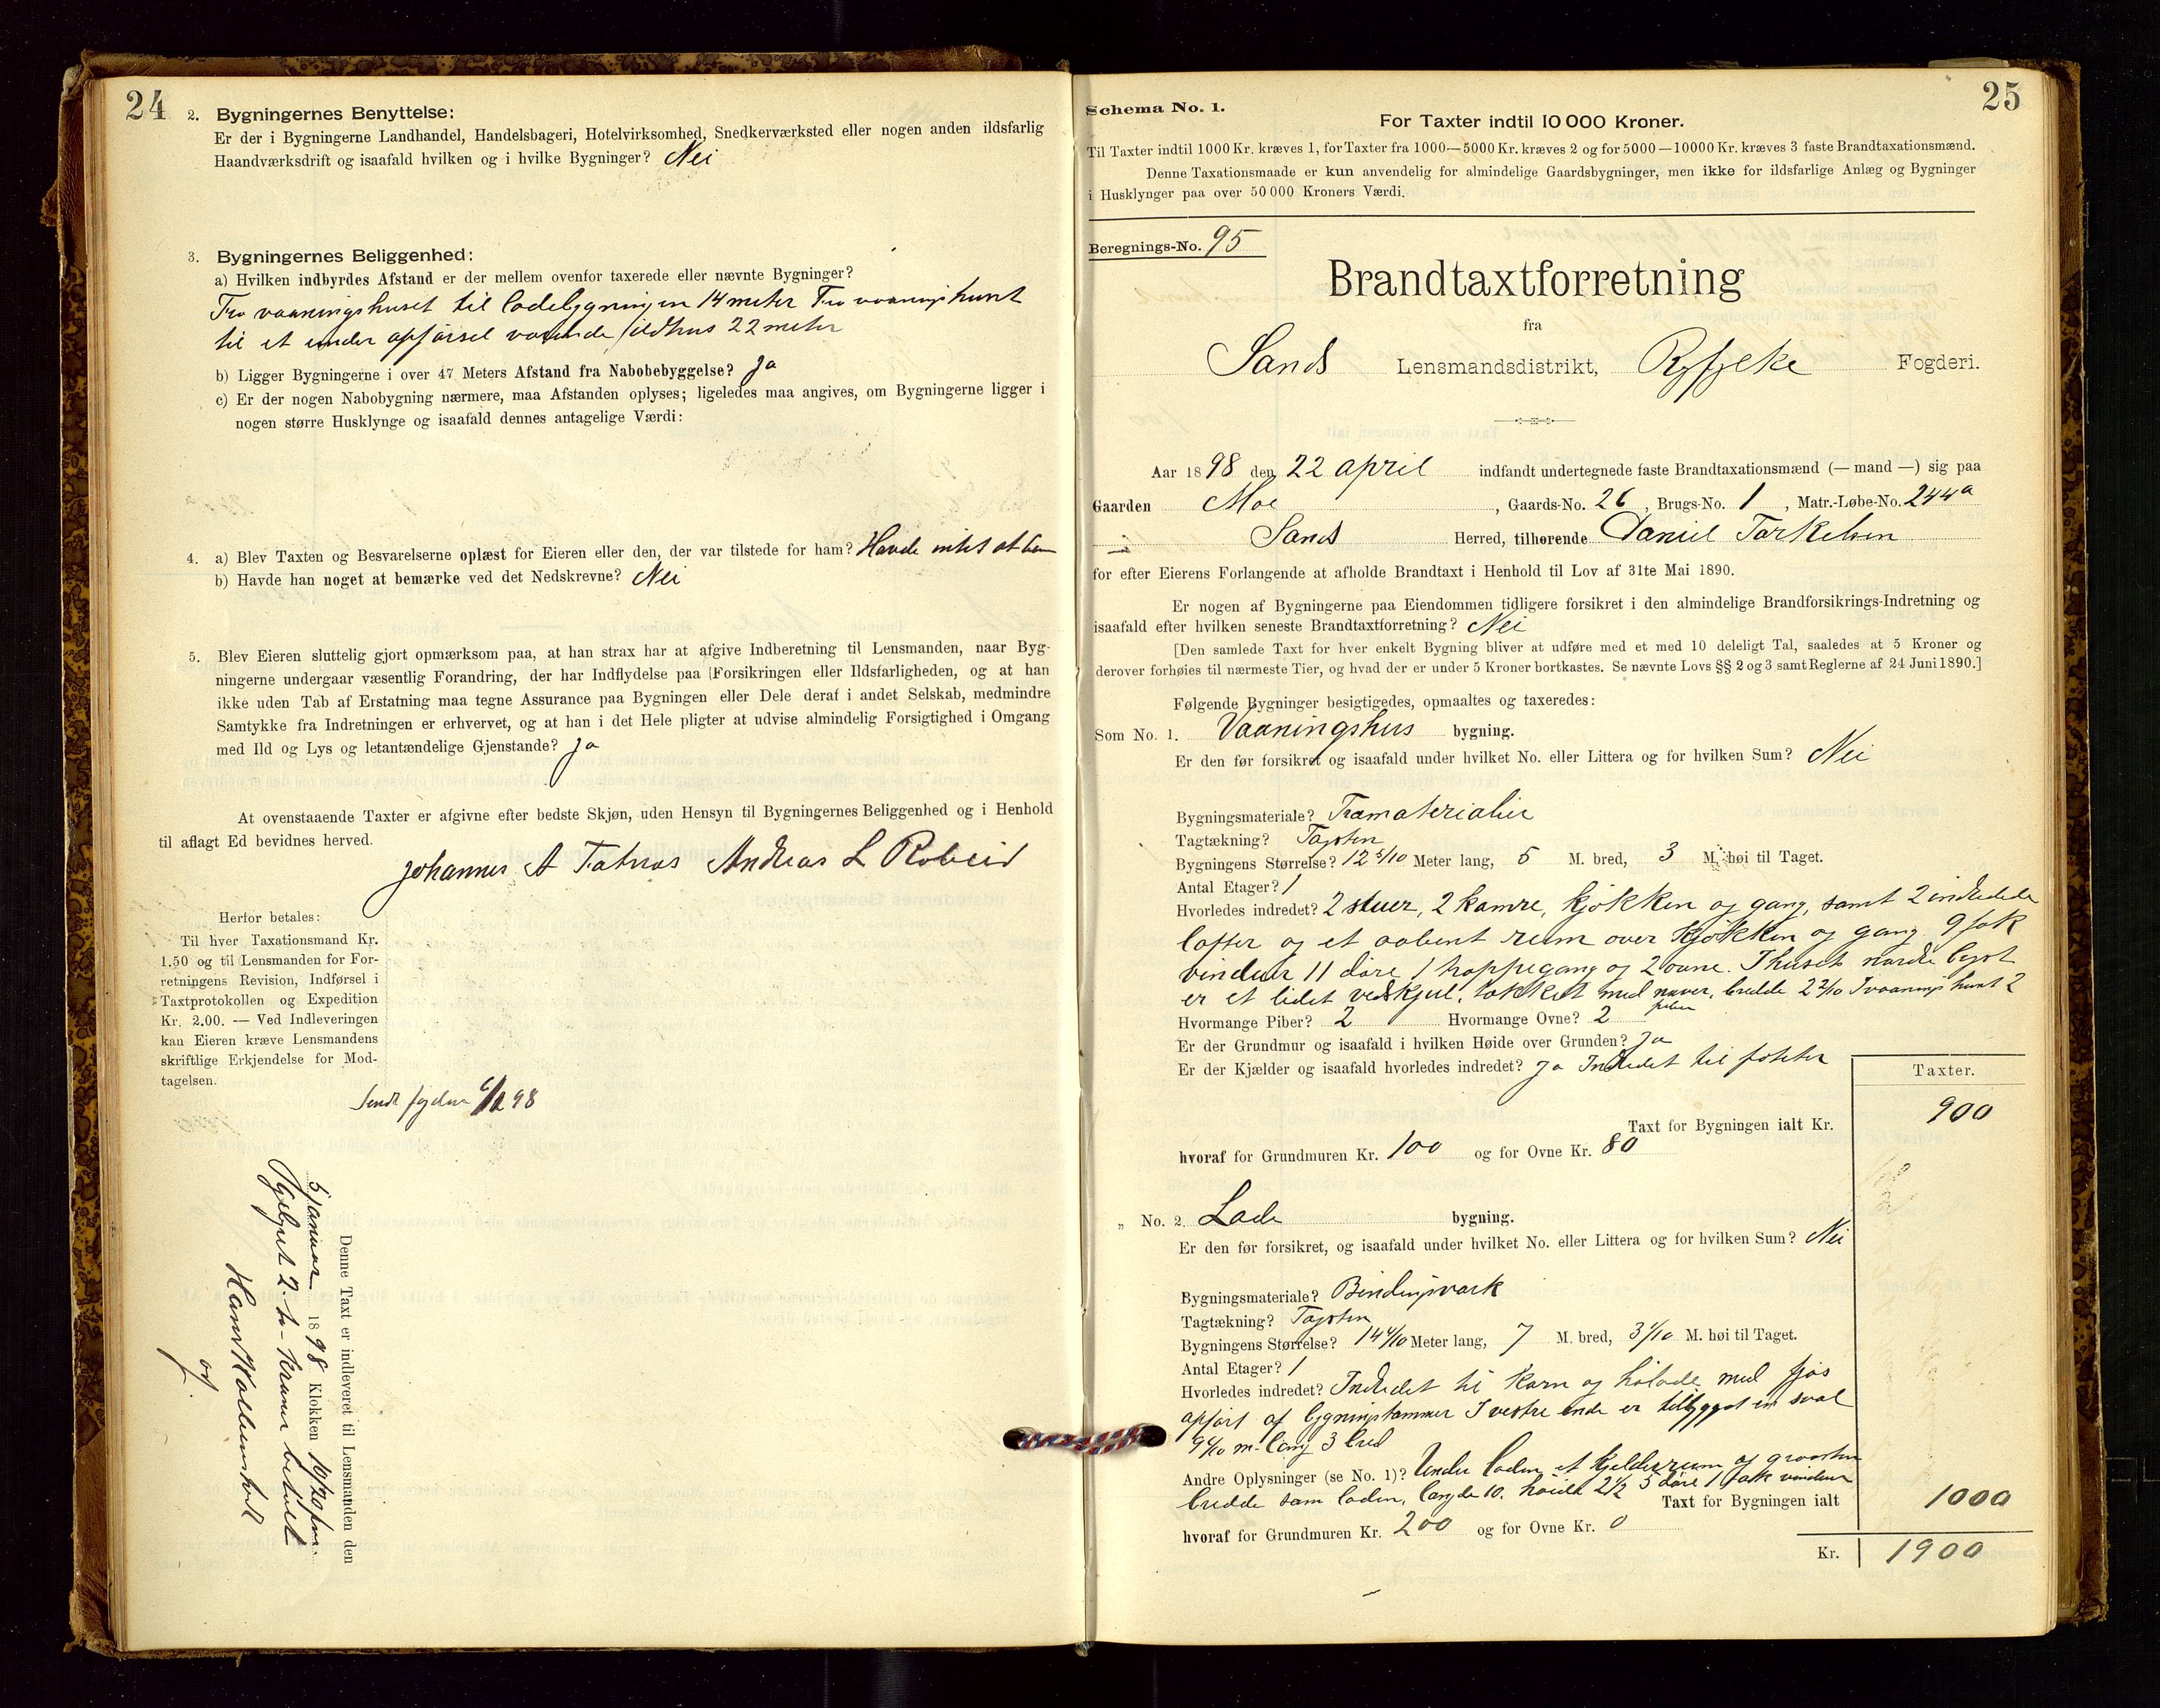 24
2. Bygningernes Benyttelse:
Er der i Bygningerne Landhandel, Handelsbageri, Hotelvirksomhed, Snedkerværksted eller nogen anden ildsfarlig
Haandværksdrift og isaafald hvilken og i hvilke Bygninger? Nei
3. Bygningernes Beliggenhed:
a) Hvilken indbyrdes Afstand er der mellem ovenfor taxerede eller nævnte Bygninger?
Fra vaaningshuset til ladebygningen 14 meter Fra vaaningshuset
til et under opførsel værende ildhus 22 meter
b) Ligger Bygningerne i over 47 Meters Afstand fra Nabobebyggelse? Ja
c) Er der nogen Nabobygning nærmere, maa Afstanden oplyses; ligeledes maa angives, om Bygningerne ligger i
nogen større Husklynge og isaafald dennes antagelige Værdi:
4. a) Blev Taxten og Besvarelserne oplæst for Eieren eller den, der var tilstede for ham? Havde intet at
b) Havde han noget at bemærke ved det Nedskrevne? Nei
5. Blev Eieren sluttelig gjort opmærksom paa, at han strax har at afgive Indberetning til Lensmanden, naar Byg-
ningerne undergaar væsentlig Forandring, der har Indflydelse paa Forsikringen eller Ildsfarligheden, og at han
ikke uden Tab af Erstatning maa tegne Assurance paa Bygningen eller Dele deraf i andet Selskab, medmindre
Samtykke fra Indretningen er erhvervet, og at han i det Hele pligter at udvise almindelig Forsigtighed i Omgang
med Ild og Lys og letantændelige Gjenstande? Ja
At ovenstaaende Taxter er afgivne efter bedste Skjøn, uden Hensyn til Bygningernes Beliggenhed og i Henhold
til aflagt Ed bevidnes herved.
Johannes A Andreas L
Herfor betales:
Til hver Taxationsmand Kr.
1.50 og til Lensmanden for For-
retningens Revision, Indførsel i
Taxtprotokollen og Expedition
Kr. 2.00. — Ved Indleveringen
kan Eieren kræve Lensmandens
skriftlige Erkjendelse for Mod-
tagelsen.
Sendt fogden 98
Denne Taxt er indleveret til Lensmanden den
5 januar 1898 Klokken 10/20 fm.
Gebyret 2 to Kroner betalt
Hans
of.
25
Schema No. 1.
For Taxter indtil 10 000 Kroner.
Til Taxter indtil 1000 Kr. kræves 1, for Taxter fra 1000—5000 Kr. kræves 2 og for 5000—10000 Kr. kræves 3 faste Brandtaxationsmænd.
Denne Taxationsmaade er kun anvendelig for almindelige Gaardsbygninger, men ikke for ildsfarlige Anlæg og Bygninger
i Husklynger paa over 50 000 Kroners Værdi.
Beregnings-No. 95
Brandtaxtforretning
fra
Sands Lensmandsdistrikt, Ryfylke Fogderi.
Aar 1898 den 22 april indfandt undertegnede faste Brandtaxationsmænd (— mand —) sig paa
Gaarden Moe, Gaards-No. 26, Brugs-No. 1, Matr.-Løbe-No. 244a
i Sands Herred, tilhørende Daniel Torkelsen
for efter Eierens Forlangende at afholde Brandtaxt i Henhold til Lov af 31te Mai 1890.
Er nogen af Bygningerne paa Eiendommen tidligere forsikret i den almindelige Brandforsikrings-Indretning og
isaafald efter hvilken seneste Brandtaxtforretning? Nei
[Den samlede Taxt for hver enkelt Bygning bliver at udføre med et med 10 deleligt Tal, saaledes at 5 Kroner og
derover forhøies til nærmeste Tier, og hvad der er under 5 Kroner bortkastes. Se nævnte Lovs §§ 2 og 3 samt Reglerne af 24 Juni 1890.]
Følgende Bygninger besigtigedes, opmaaltes og taxeredes:
Som No. 1. Vaaningshus bygning.
Er den før forsikret og isaafald under hvilket No. eller Littera og for hvilken Sum? Nei
Bygningsmateriale? Træmaterialier
Tagtækning? Tagsten
Bygningens Størrelse? 12 5/10 Meter lang, 5 M. bred, 3 M. høi til Taget.
Antal Etager? 1
Hvorledes indredet? 2 stuer, 2 kamre, kjøkken og gang, samt 2 indredede
lofter og et aabent rum over kjøkken og gang. 9 fak
vinduer 11 døre 1 trappegang og 2 ovne. I huset nordre
er et lidet vedskjul, tækket med næver, bredde 2 2/10 I vaaningshuset 2
piber
Hvormange Piber? 2 Hvormange Ovne? 2
Er der Grundmur og isaafald i hvilken Høide over Grunden? Ja
Er der Kjælder og isaafald hvorledes indredet? Ja Indredet til poteter
Taxter.
Taxt for Bygningen ialt Kr. 900
hvoraf for Grundmuren Kr. 100 og for Ovne Kr. 80
„ No. 2. Lade bygning.
Er den før forsikret, og isaafald under hvilket No. eller Littera og for hvilken Sum? Nei
Bygningsmateriale? Bindingsværk
Tagtækning? Tagsten
Bygningens Størrelse? 14 4/10 Meter lang, 7 M. bred, 3 1/10 M. høi til Taget.
Antal Etager? 1
Hvorledes indredet? Indredet til korn og hølade med fjøs
opført af bygningstømmer I vestre ende er tilbygget en sval
9 6/10 m. lang 3 bred
Andre Oplysninger (se No. 1)? Under laden et kjelderrum af graasten
bredde som laden, længde 10, høide 2 1/2 5 døre 1 fak vinduer
Taxt for Bygningen ialt 1000
hvoraf for Grundmuren Kr. 200 og for Ovne Kr. 0
Kr. 1900